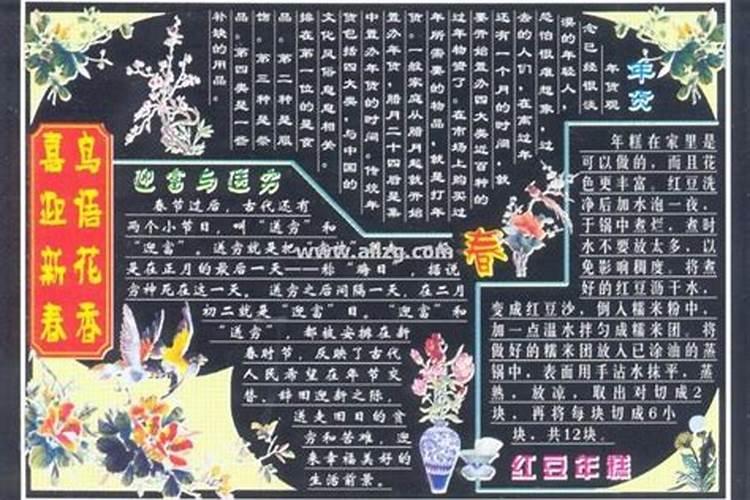 年货
年货观
念已经很淡
漠的年轻人，
恐怕很难想象，过
去的人们，在离过年
还有一个月的时间，就
要开始置办四大类近百种的
过年物资了。在市场上购买过
年所需要的物品，就是打年
货。一般家庭从腊月起就开始
置办年货，腊月二十四后是集
中置办年货的时间。传统年
货包括四大类，与中国的
文化风俗息息相关。
排在第一位的是食
品。第二种是服
饰。第三种是祭
品。第四类是一些
补缺的用品。
鸟语花香
喜迎新春
迎富与送穷
春节过后，古代还有
两个小节日，叫“送穷”和
“迎富”。送穷就是把
是在正月的最后一天——称“晦日”，据说
穷神死在这一天。送穷之后间隔一天，在二月
初二就是“迎富”日。“迎富”和
“送穷”，都被安排在新
春时节，反映了古代
人民希望在年节交
替、辞旧迎新之际，
送走旧日的贫
穷和苦难，迎
来幸福美好的
生活前景。
www.allzg.com
春
年糕在家里是
可以做的，而且花
色更丰富。红豆洗
净后加水泡一夜，
于锅中煮烂，煮时
水不要放太多，以
免影响稠度。将煮
好的红豆沥干水，
变成红豆沙，倒入糯米粉中，
加一点温水拌匀成糯米团。将
做好的糯米团放入已涂油的蒸
锅中，表面用手沾水抹平，蒸
熟，放凉，取出对切成2
块，再将每块切成6小
块，共12块。
红豆年糕